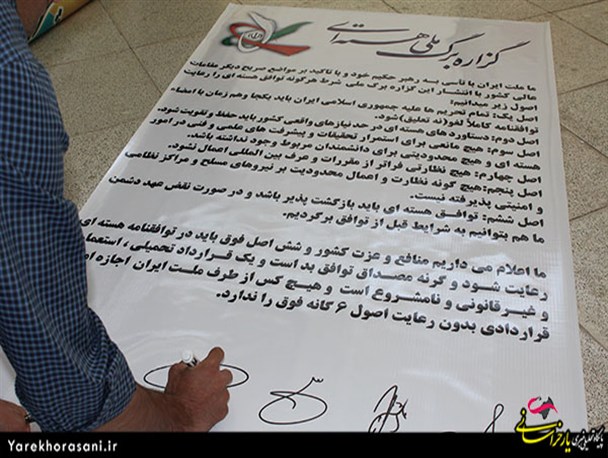 گزاره برگ ملی هسته ای
ما ملت ایران با تأسی به رهبر حکیم خود و با تاکید بر مواضع صریح دیگر مقامات
عالی کشور با انتشار این گزاره برگ ملی شرط هرگونه توافق هسته ای را رعایت
اصول زیر میدانیم:
اصل یک: تمام تحریم ها علیه جمهوری اسلامی ایران باید یکجا وهم زمان با امضاء
توافقنامه کاملاً لغو(نه تعلیق)شود.
اصل دوم: دستاوردهای هسته ای در حد نیازهای واقعی کشور باید حفظ و تقویت شود.
اصل سوم: هیچ مانعی برای استمرار تحقیقات و پیشرفت های علمی و فنی در امور
هسته ای و هیچ محدودیتی برای دانشمندان مربوط وجود نداشته باشد.
اصل چهارم: هیچ نظارتی فراتر از مقررات و عرف بین المللی اعمال نشود.
اصل پنجم:هیچ گونه نظارت و اعمال محدودیت بر نیروهای مسلح و مراکز نظامی
و امنیتی پذیرفته نیست.
اصل ششم: توافق هسته ای باید بازگشت پذیر باشد و در صورت نقض عهد دشمن
ما هم بتوانیم به شرایط قبل از توافق برگردیم.
ما اعلام می داریم منافع و عزت کشور و شش اصل فوق باید در توافقنامه هسته ای
رعایت شود و گرنه مصداق توافق بد است و یک قرارداد تحمیلی ،
و غیرقانونی و نامشروع است و هیچ کس از طرف ملت ایران اجازه
قراردادی بدون رعایت اصول ۶ گانه فوق را ندارد.
Yarekhorasani.ir
یارخراسانی